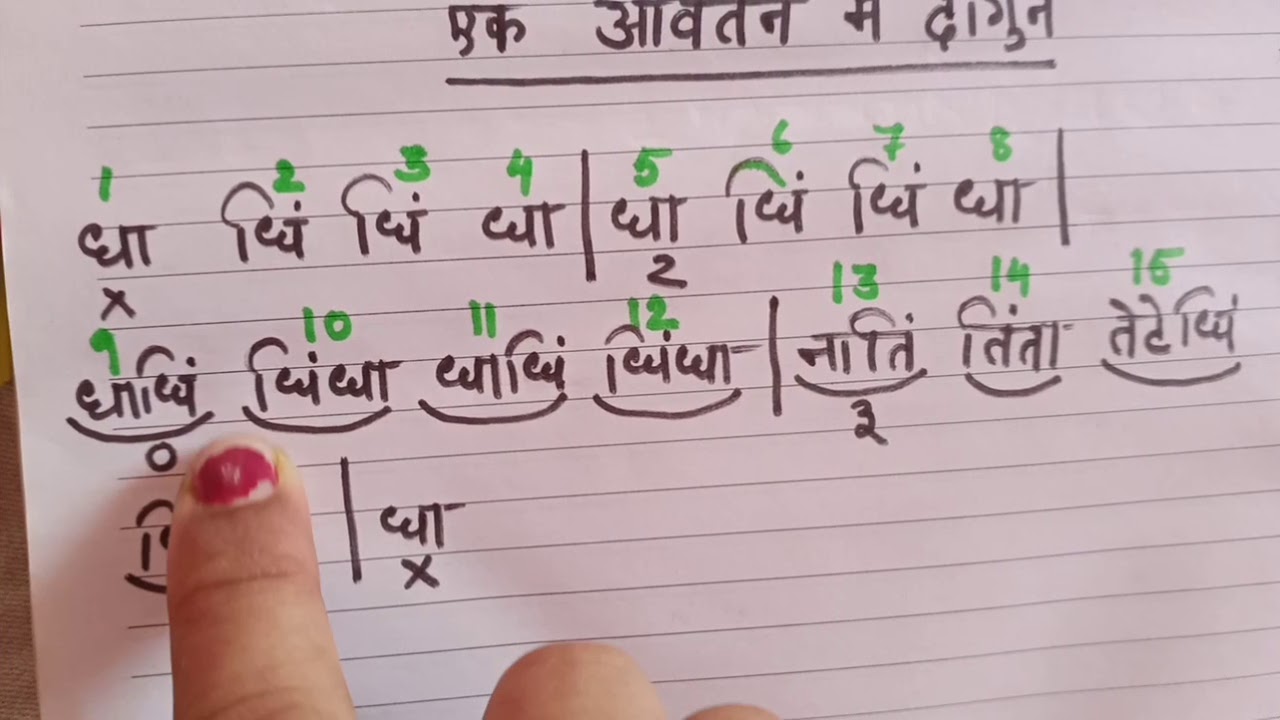 एक आवर्तन में दोगुन
1 2 3 4 5 6 7 8
धा धिं धिं धा | धा धिं धिं धा |
x 2
9 10 11 12 13 14 15
धाधिं धिंधा धाधिं धिंधा | नातिं तिंता तेटेधिं
0 3
| धा
x